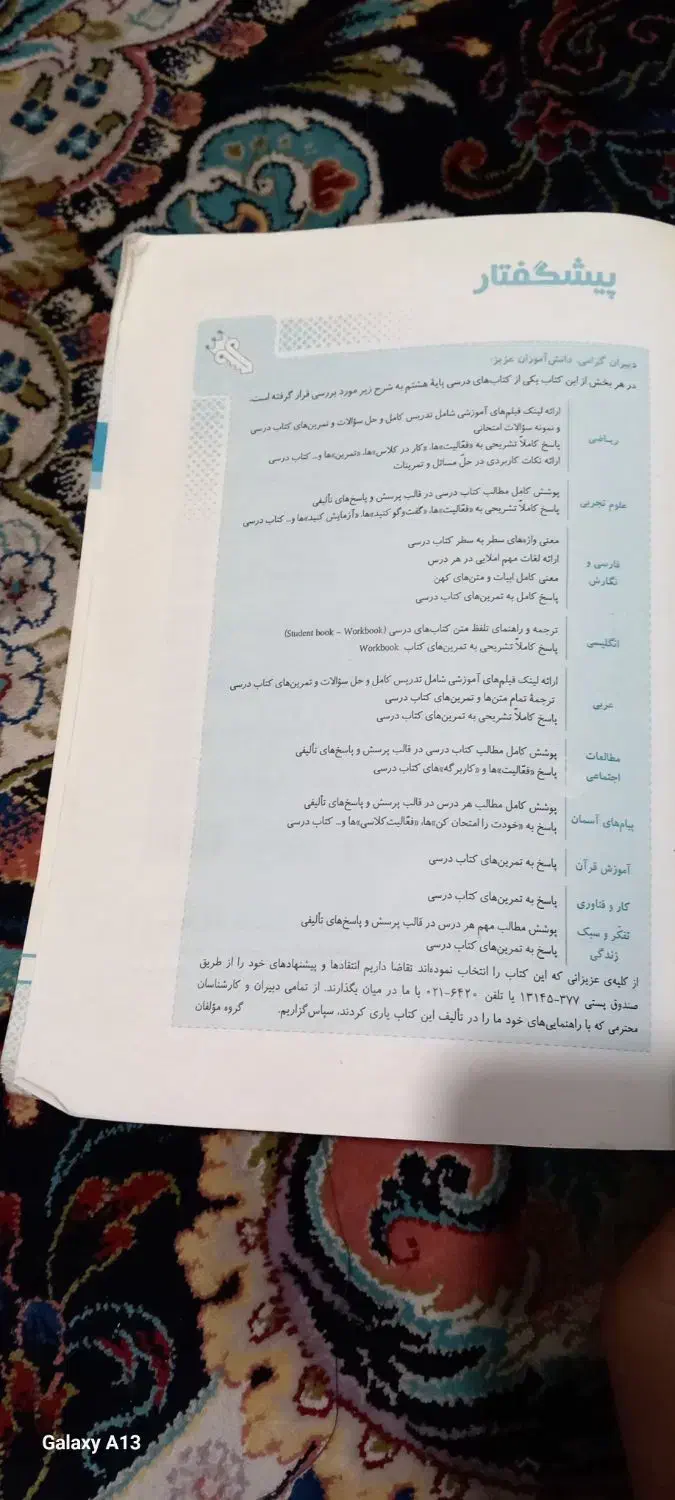 پیشگفتار
دبیران گرامی، دانش‌آموزان عزیز:
در هر بخش از این کتاب یکی از کتاب‌های درسی پایهٔ هشتم به شرح زیر مورد بررسی قرار گرفته است.
ریـاضی
ارائه لینک فیلم‌های آموزشی شامل تدریس کامل و حل سؤالات و تمرین‌های کتاب درسی
و نمونه سؤالات امتحانی
پاسخ کاملاً تشریحی به «فعّالیت»ها، «کار در کلاس»ها، «تمرین»ها و... کتاب درسی
ارائه نکات کاربردی در حلّ مسائل و تمرینات
علوم تجربی
پوشش کامل مطالب کتاب درسی در قالب پرسش و پاسخ‌های تألیفی
پاسخ کاملاً تشریحی به «فعّالیت»ها، «گفت‌وگو کنید»ها، «آزمایش کنید»ها و... کتاب درسی
فارسی و
نگارش
معنی واژه‌های سطر به سطر کتاب درسی
ارائه لغات مهم املایی در هر درس
معنی کامل ابیات و متن‌های کهن
پاسخ کامل به تمرین‌های کتاب درسی
انگلیسی
ترجمه و راهنمای تلفظ متن کتاب‌های درسی (Student book - Workbook)
پاسخ کاملاً تشریحی به تمرین‌های کتاب Workbook
عربی
ارائه لینک فیلم‌های آموزشی شامل تدریس کامل و حل سؤالات و تمرین‌های کتاب درسی
ترجمهٔ تمام متن‌ها و تمرین‌های کتاب درسی
پاسخ کاملاً تشریحی به تمرین‌های کتاب درسی
مطالعات
اجتماعی
پوشش کامل مطالب کتاب درسی در قالب پرسش و پاسخ‌های تألیفی
پاسخ «فعّالیت»ها و «کاربرگه»های کتاب درسی
پیام‌های آسمان
پوشش کامل مطالب هر درس در قالب پرسش و پاسخ‌های تألیفی
پاسخ به «خودت را امتحان کن»ها، «فعّالیت کلاسی»ها و... کتاب درسی
آموزش قرآن
پاسخ به تمرین‌های کتاب درسی
کار و فناوری
پاسخ به تمرین‌های کتاب درسی
تفکّر و سبک
زندگی
پوشش مطالب مهم هر درس در قالب پرسش و پاسخ‌های تألیفی
پاسخ به تمرین‌های کتاب درسی
از کلیه‌ی عزیزانی که این کتاب را انتخاب نموده‌اند تقاضا داریم انتقادها و پیشنهادهای خود را از طریق
صندوق پستی ۳۷۷-۱۳۱۴۵ یا تلفن ۶۴۲۰-۰۲۱ با ما در میان بگذارند. از تمامی دبیران و کارشناسان
محترمی که با راهنمایی‌های خود ما را در تألیف این کتاب یاری کردند، سپاس‌گزاریم. گروه مؤلفان
Galaxy A13